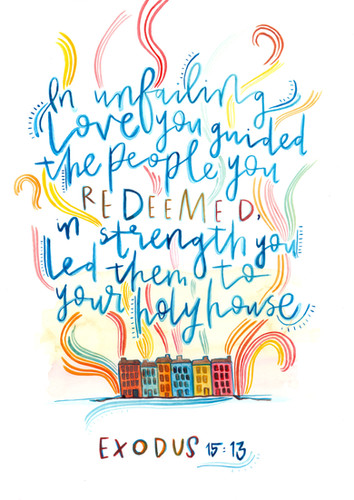 In unfailing
Love you guided
the people you
REDEEMED,
in strength you
Led them to
your holy house
EXODUS 15:13